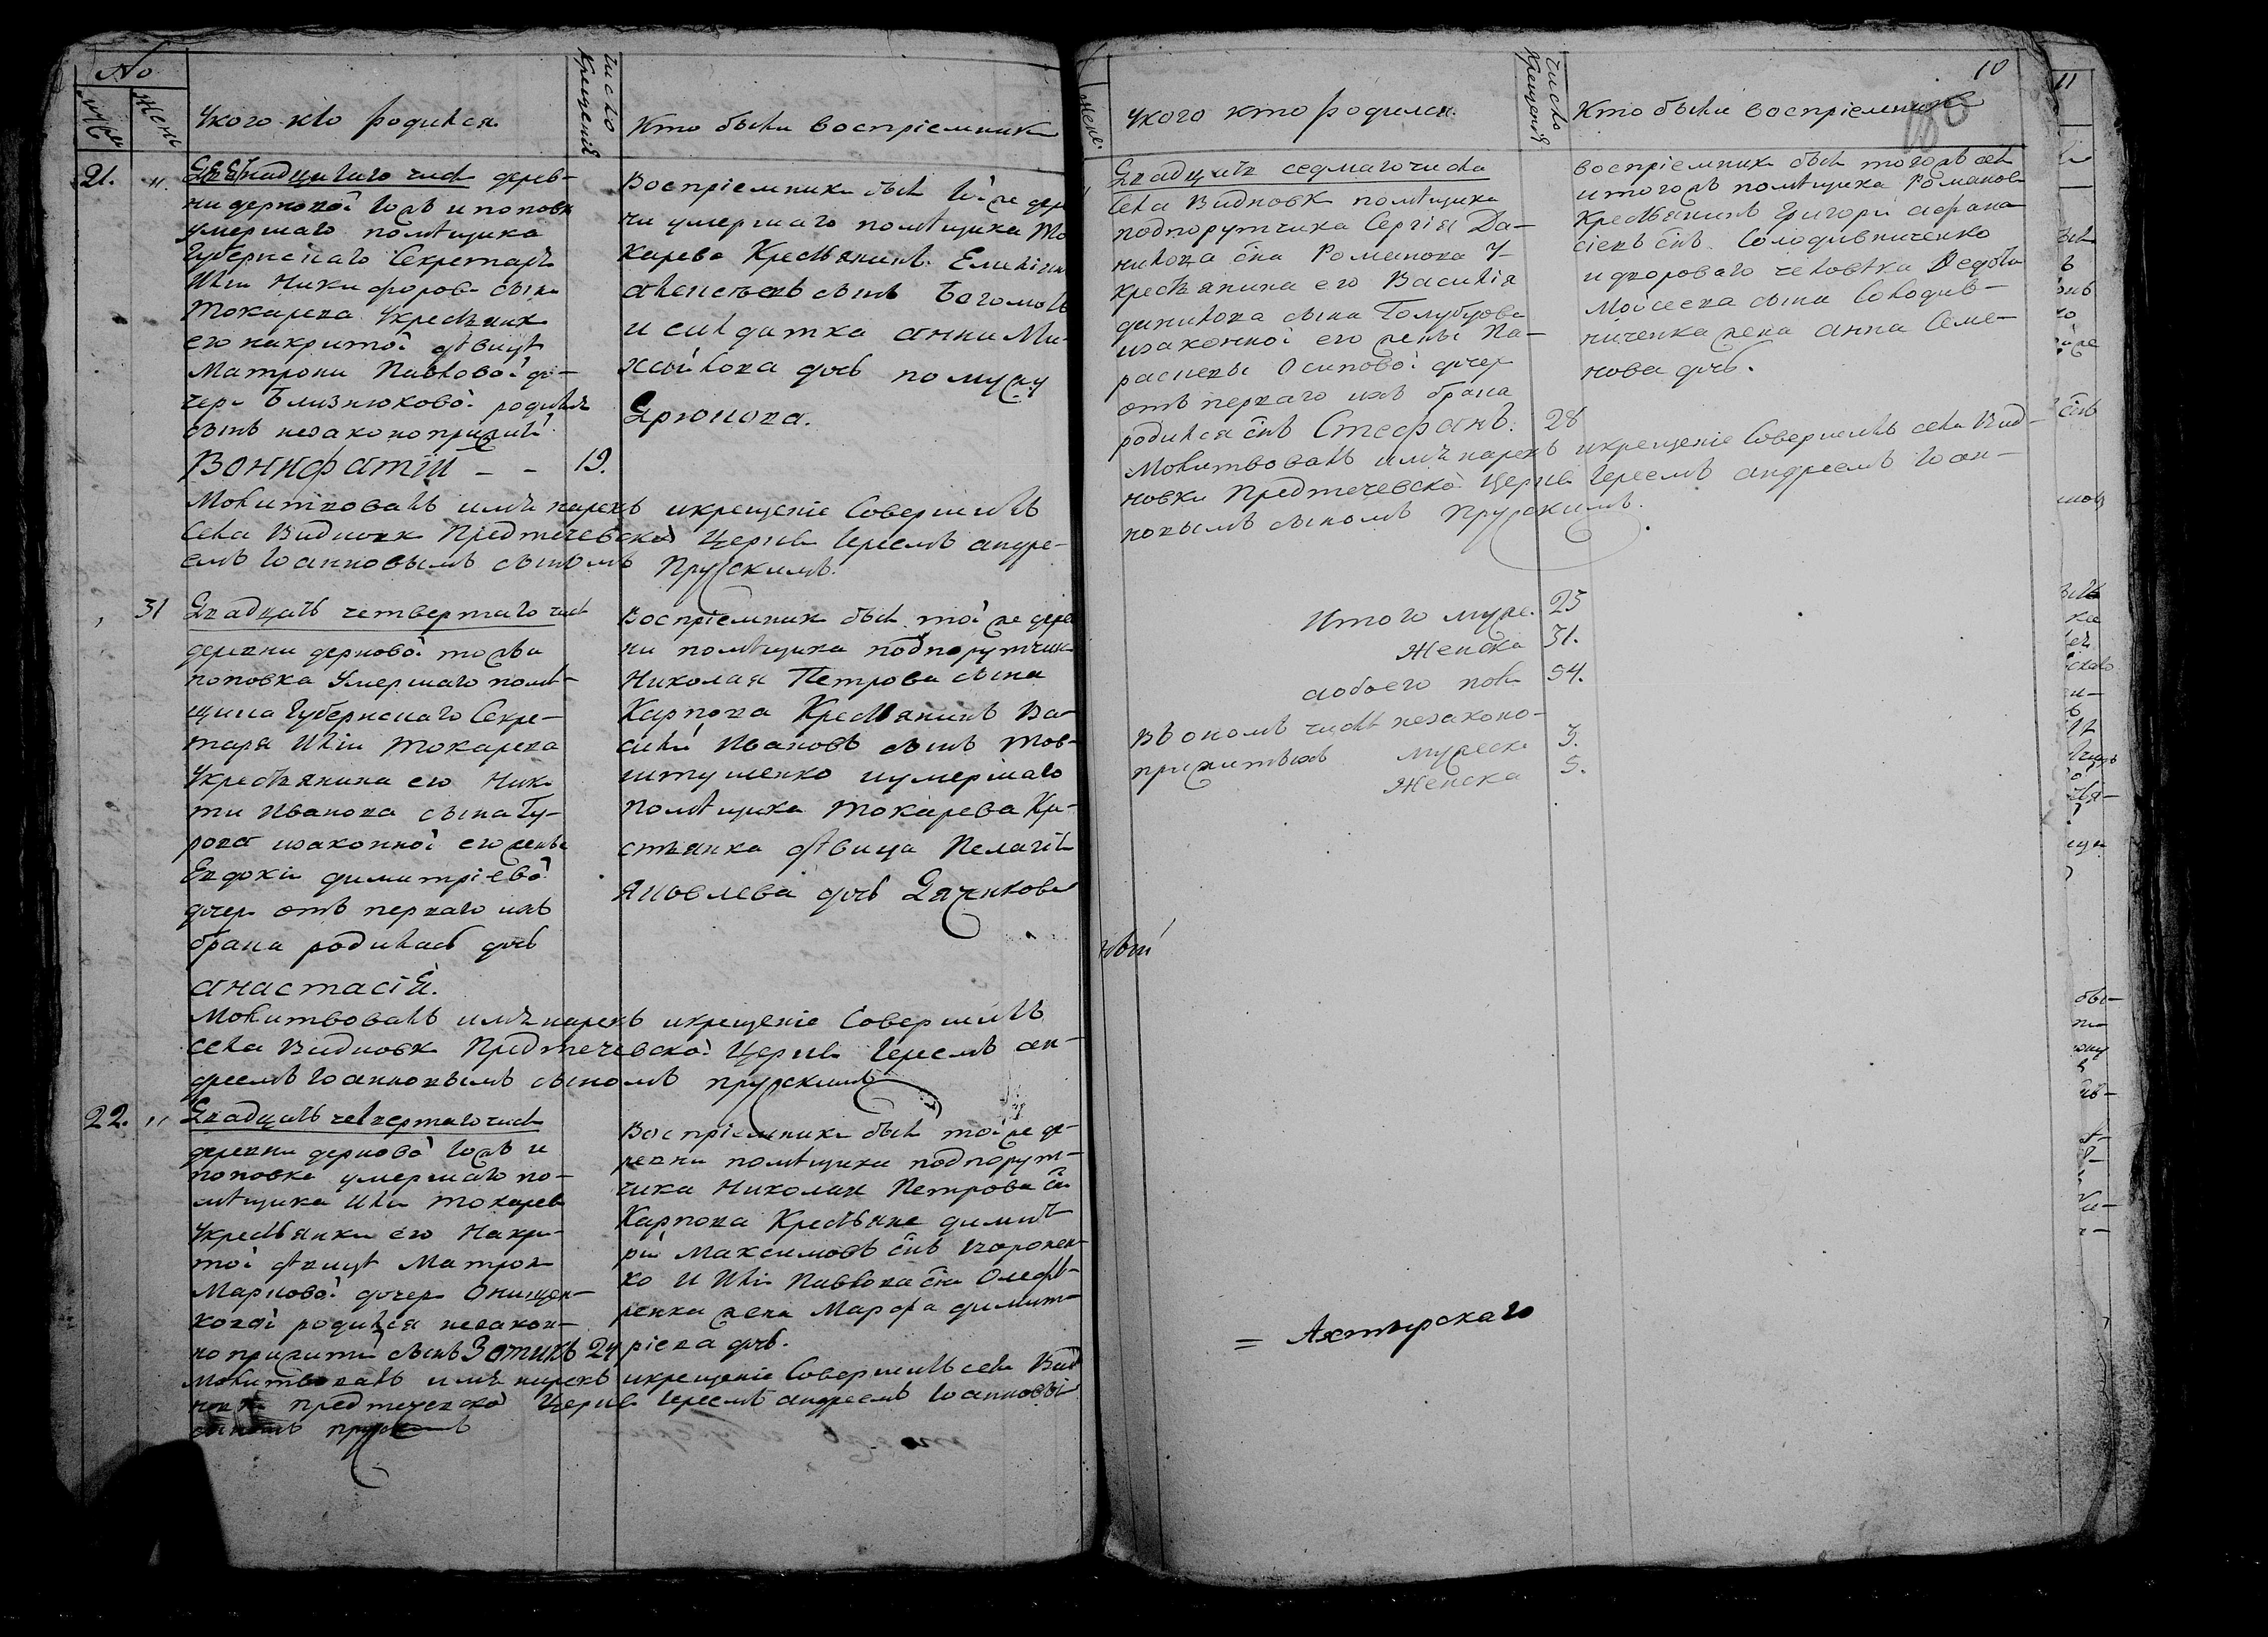 No
муже
жень
У кого кто родился
Число
Крещений
Кто были воспріемники
21.
"
числа дерев-
ни дерновой тожъ и поповк
умершаго помѣщика
Губернскаго Секретаря
Ильи Никифорова сына
Токарева у крестьянк
его накритой дѣвицы
Матрони Павловой до-
чери Близнюковой родился
сынъ незаконоприжит
Вонифатій - - 19.
Воспріемники былъ той же дере
ни умершаго помѣщика То
карева Крестьянинъ
сынъ Богомол
и солдатка анна Ми-
хайлова дочь по мужу
Дрюкова.
Молитвовалъ имя нарекъ и крещеніе Совершилъ
Села Видновк Предтечевской Церкви Іереемъ андре-
емъ Іоанновымъ сыномъ Прускимъ.
31
Двадцать четвертаго числ
деревни дерновой тожъ и
поповка Умершаго помѣ-
щика Губернскаго Секре-
таря Ильи Токарева
У крестьянина его Ники
ти Иванова сына Гу-
рова и законной его жены
Евдокіи димитріевой
дочери отъ перваго ихъ
брака родилась дочь
анастасія.
Воспріемник былъ той же дерев
ни помѣщика подпорутчик
Николая Петрова сына
Карпова Крестьянинъ Ва-
силий Ивановъ сынъ Тов-
и умершаго
помѣщика Токарева Кре-
стьянка дѣвица Пелагія
Яковлева дочь Дяченкова
Молитвовалъ имя нарекъ и крещеніе Совершилъ
села Видновк Предтечевской Церкви Іереемъ ан-
дреемъ Іоанновымъ сыномъ прускимъ
22.
"
Двадцать четвертаго числ
деревни дерновой тожъ и
поповка умершаго по-
мѣщика Ильи Токарев
У крестьянки его Накри-
той дѣвицы Матрон
Марковой дочери Онищен-
ковой родился незакон-
но прижити сынъ Зотикъ 24
Воспріемники былъ той же де-
ревни помѣщика подпорут-
чика Николая Петрова сн
Карпова Крестьяне димит
рій Максимовъ снъ
ко и Ильи Павлова сна Олефѣ-
ренка жена Марфа димит-
ріева дочь.
Молитвовалъ имя нарекъ и крещеніе Совершилъ села Вид
новки предтечевской Церкви Іереемъ андреемъ Іоанновы
сыномъ прускимъ
10
жень
У кого кто родился.
Число
Крещеній
Кто были воспріемники
Двадцать седмаго числа
Села Видновк помѣщика
подпорутчика Сергія Да-
нилова сна Романова У
крестьянина его Василія
данилова сына Голубцова
и законной его жены Па-
раскевы Осиповой дочер
отъ перваго ихъ брака
родился снъ Стефанъ. 28
воспріемник былъ тогожъ сел
и тогожъ помѣщика Романов
Крестьянинъ Григори афана
сіевъ снъ Солодивниченко
и двороваго человѣка Ѳедота
Мойсеева сына Солодив-
ниченка жена анна Семе-
нова дочь.
Молитвовалъ имя нарекъ и крещеніе Совершилъ села Вид-
новки Предтечевской Церкви Іереемъ андреемъ Іоан-
новымъ сыномъ Прускимъ.
Итого муже. 23
Женска 31.
а обоего пола 54.
Въ ономъ числѣ незаконо-
прижитыхъ мужеска 3.
Женска 5.
= Ахтырскаго
11